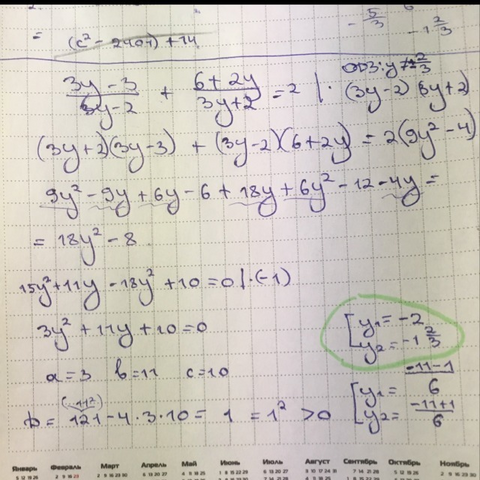 - 5/3
- 1 2/3
= (c² - 2401) + 14
ОДЗ: y ≠ ± 2/3
(3y - 3)/(3y - 2) + (6 + 2y)/(3y + 2) = 2 | · (3y - 2)(3y + 2)
(3y + 2)(3y - 3) + (3y - 2)(6 + 2y) = 2(9y² - 4)
9y² - 9y + 6y - 6 + 18y + 6y² - 12 - 4y =
= 18y² - 8
15y² + 11y - 18y² + 10 = 0 | · (-1)
3y² + 11y + 10 = 0
[ y₁ = -2
y₂ = -1 2/3
a = 3 b = 11 c = 10
[ y₁ = (-11 - 1)/6
y₂ = (-11 + 1)/6
D = 121 - 4 · 3 · 10 = 1 = 1² > 0
Январь Февраль Март Апрель Май Июнь Июль Август Сентябрь Октябрь Ноябрь